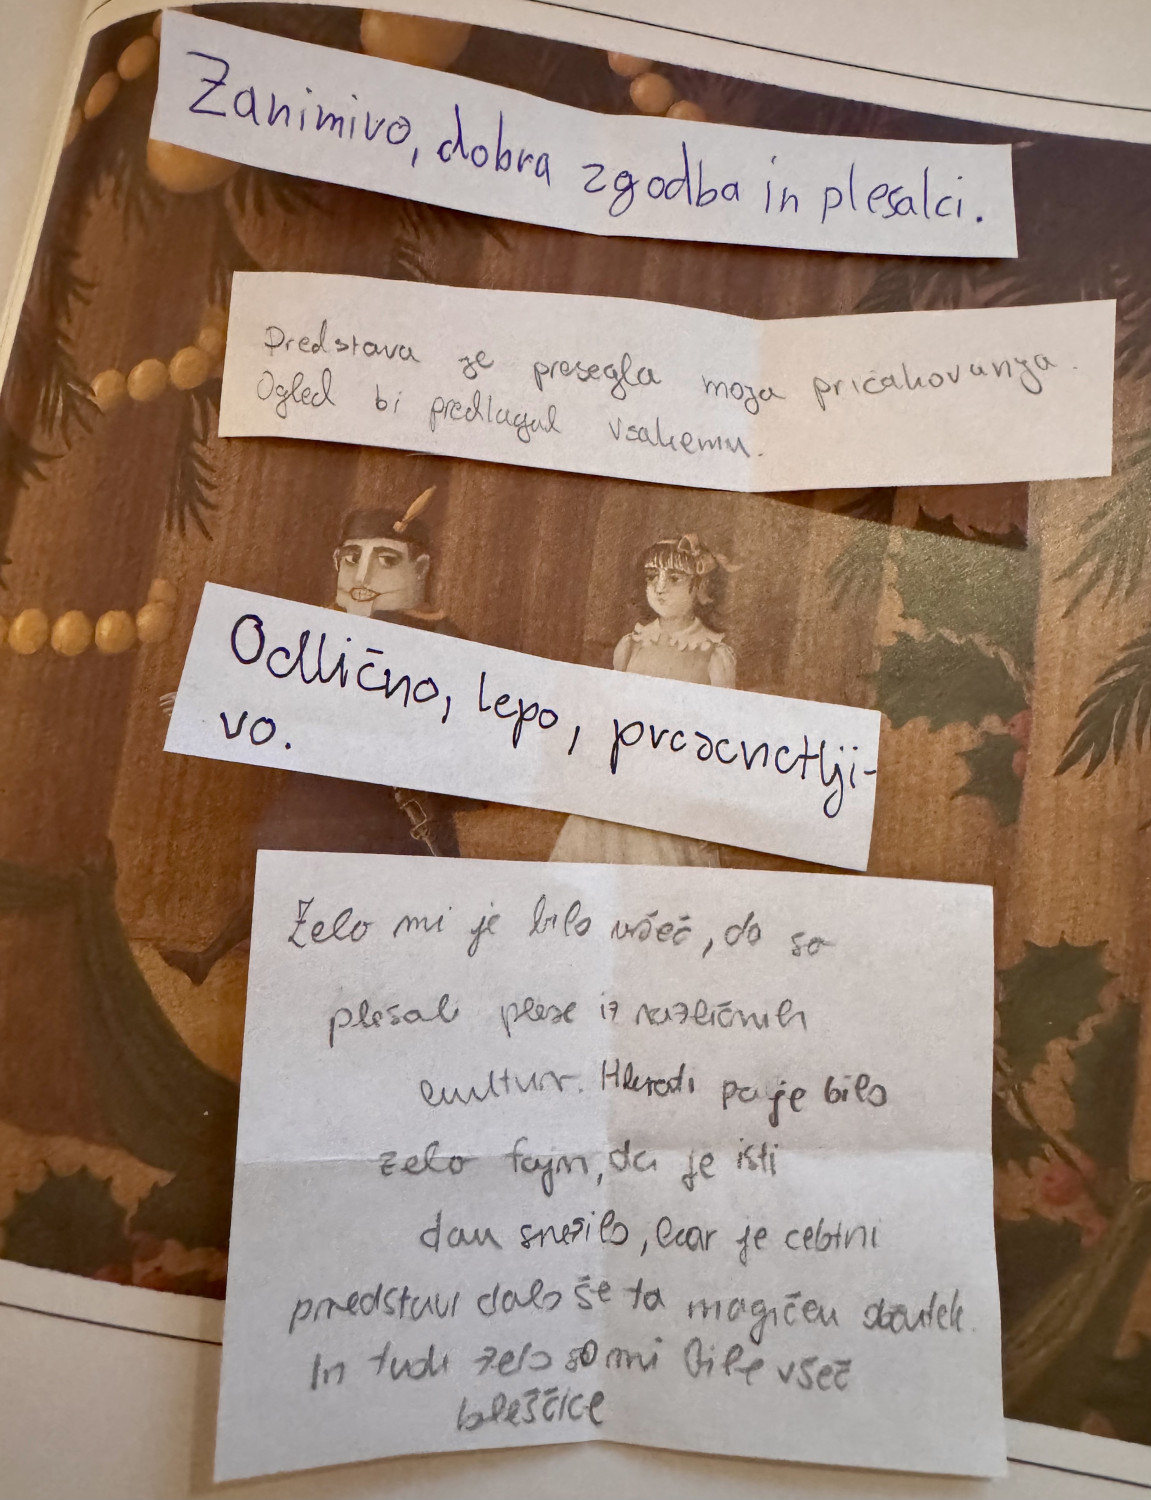 Zanimivo, dobra zgodba in plesalci.
Predstava je presegla moja pričakovanja.
Ogled bi predlagal vsakemu.
Odlično, lepo, presenetlji-
vo.
Zelo mi je bilo všeč, da so
plesali plese iz različnih
kultur. Hkrati pa je bilo
zelo fajn, da je isti
dan snežilo, kar je celotni
predstavi dalo še ta magičen občutek.
In tudi zelo so mi bile všeč
bleščice